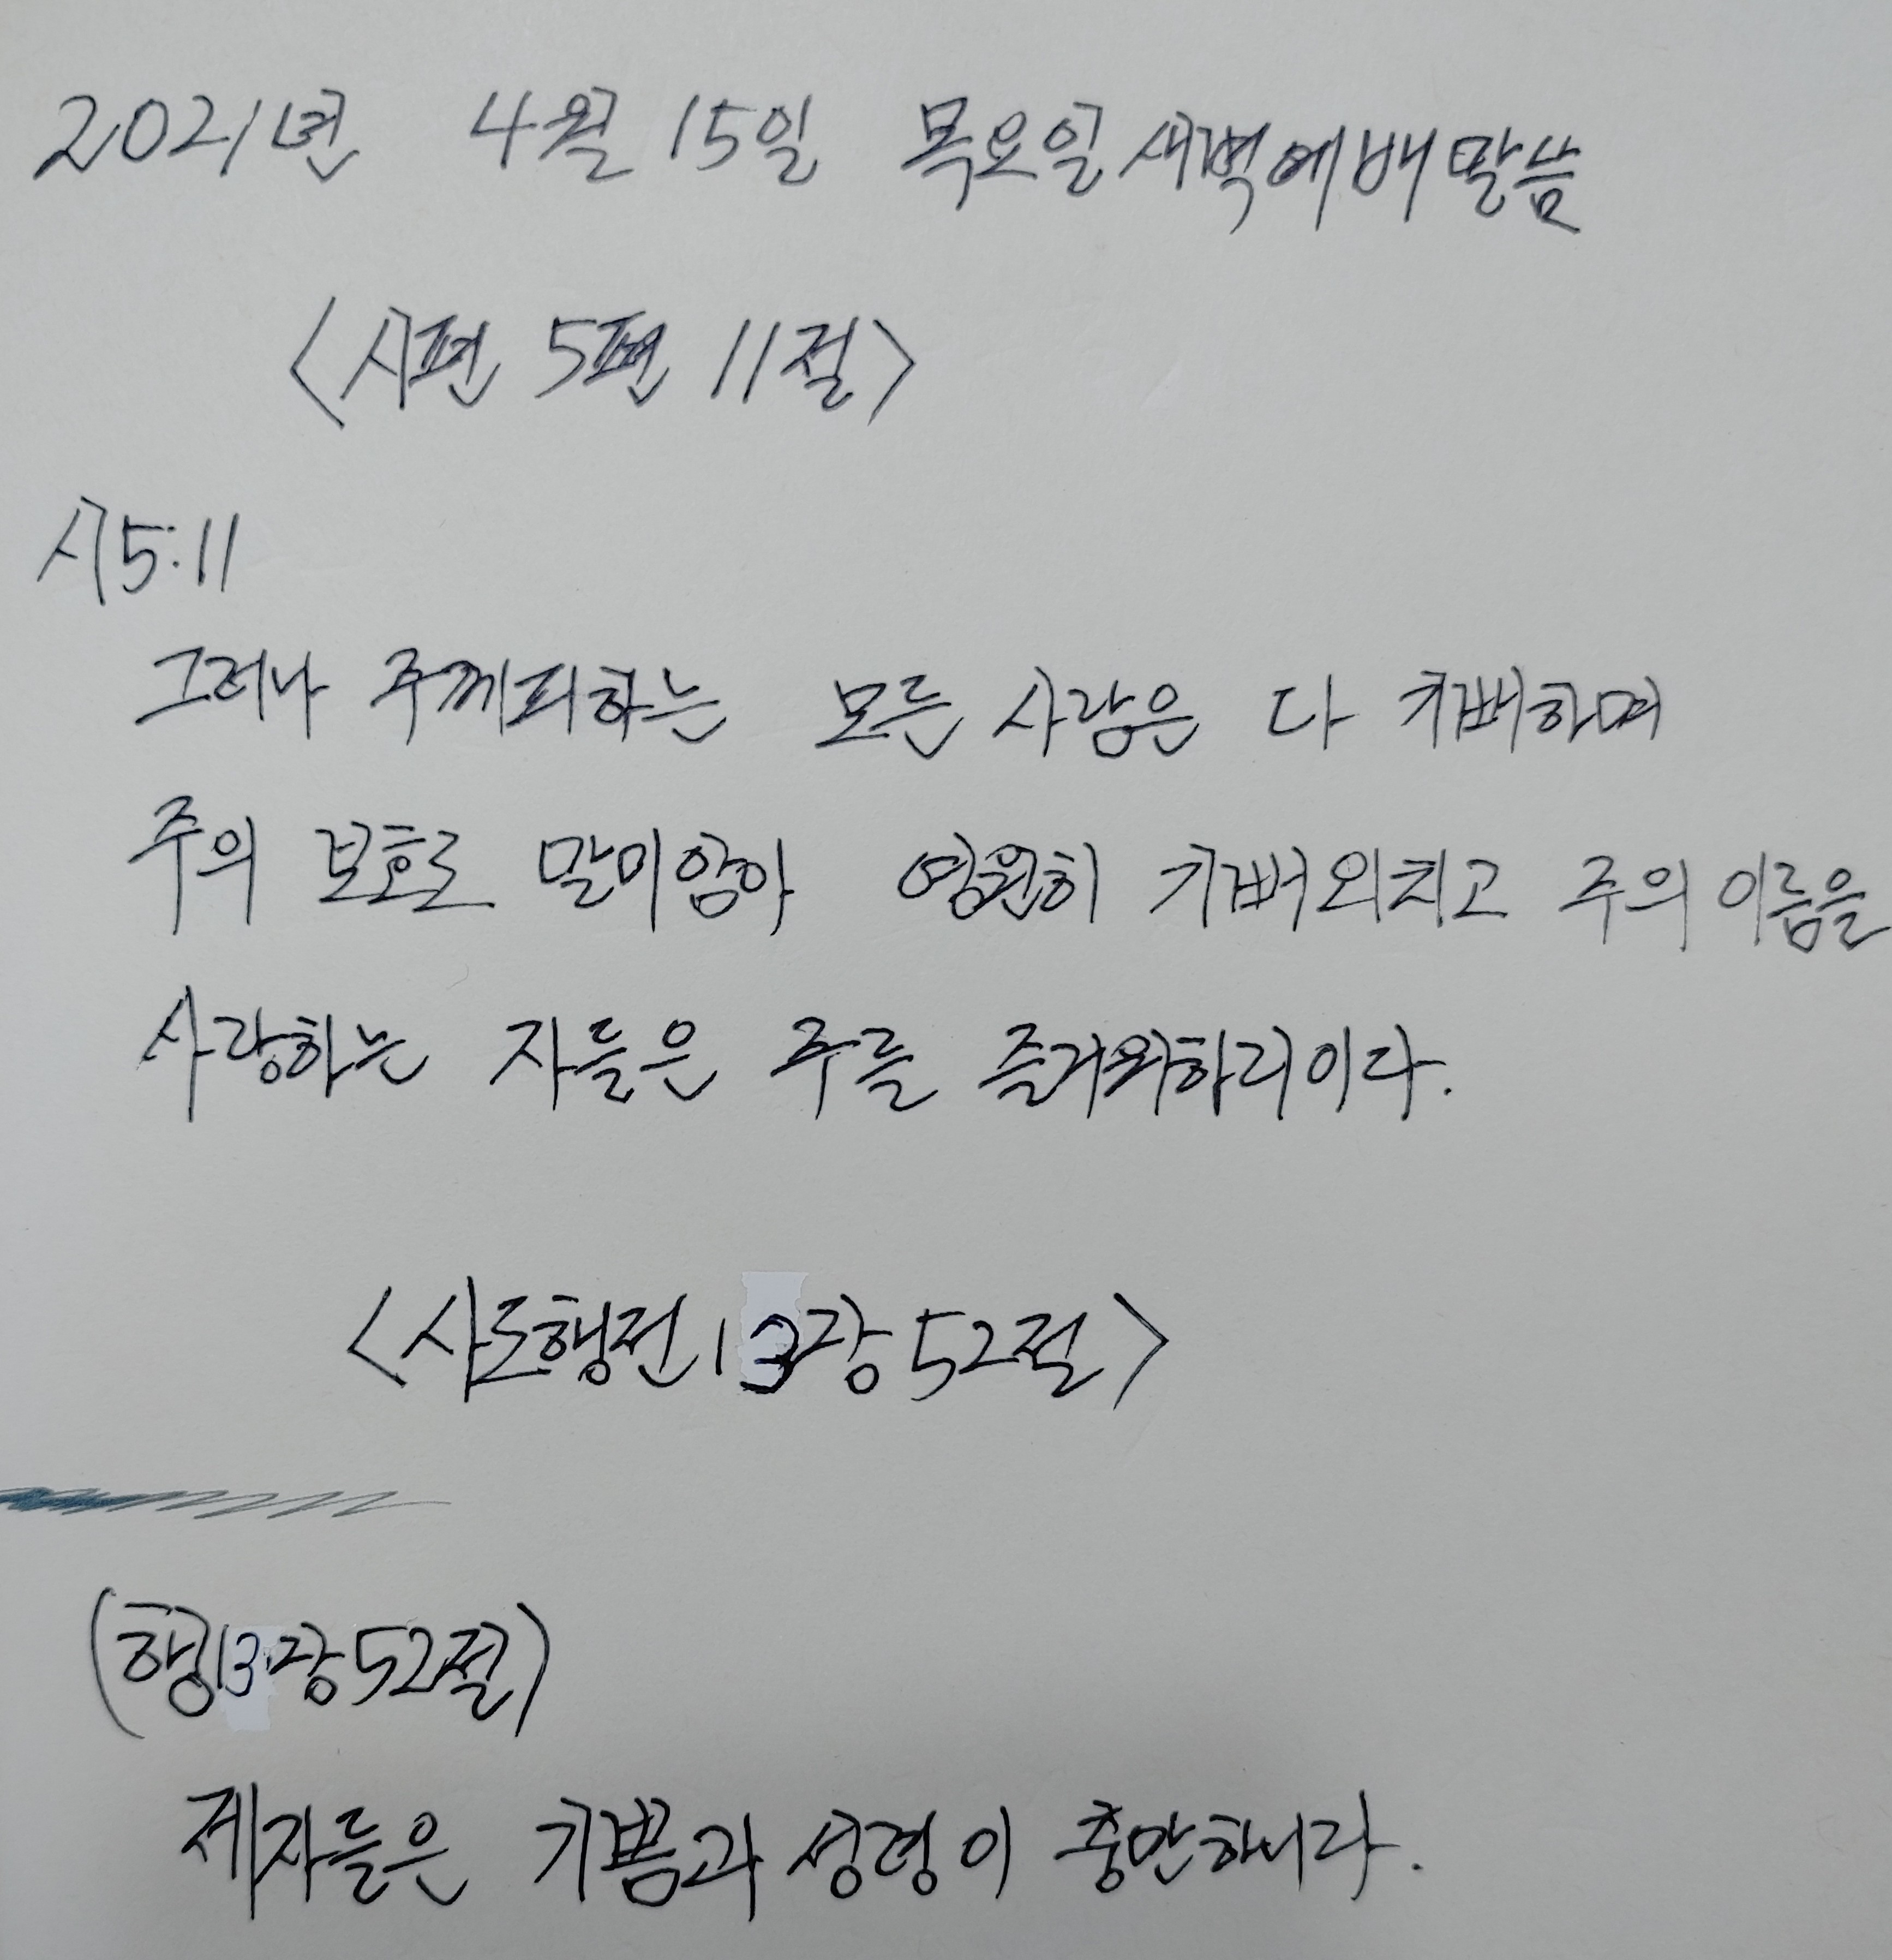 2021년 4월 15일 목요일 새벽예배말씀
<시편 5편 11절>
시5:11
그러나 주께피하는 모든 사람은 다 기뻐하며
주의 보호로 말미암아 영원히 기뻐외치고 주의 이름을
사랑하는 자들은 주를 즐거워하리이다.
<사도행전13장52절>
(행13장52절)
제자들은 기쁨과 성령이 충만하니라.